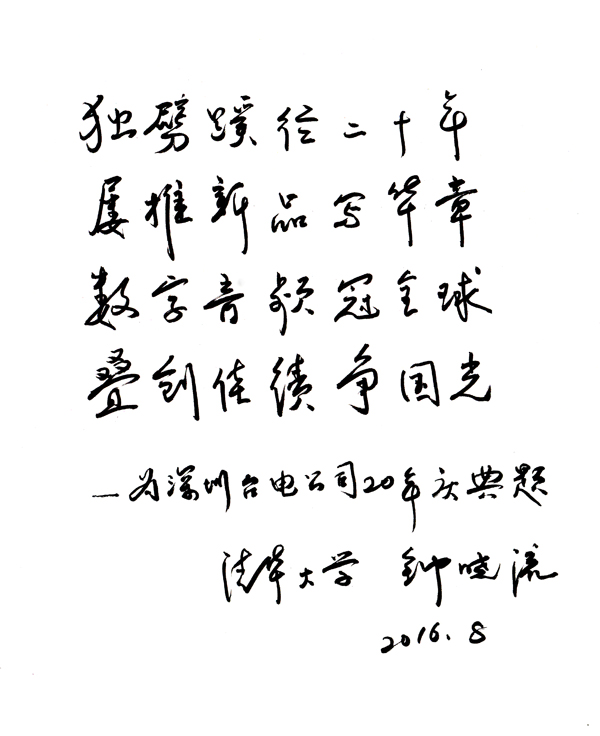 独劈蹊径二十年
屡推新品写华章
数字音频冠全球
叠创佳绩争国光
—为深圳台电公司20年庆典题
清华大学 钟晓流
2016.8